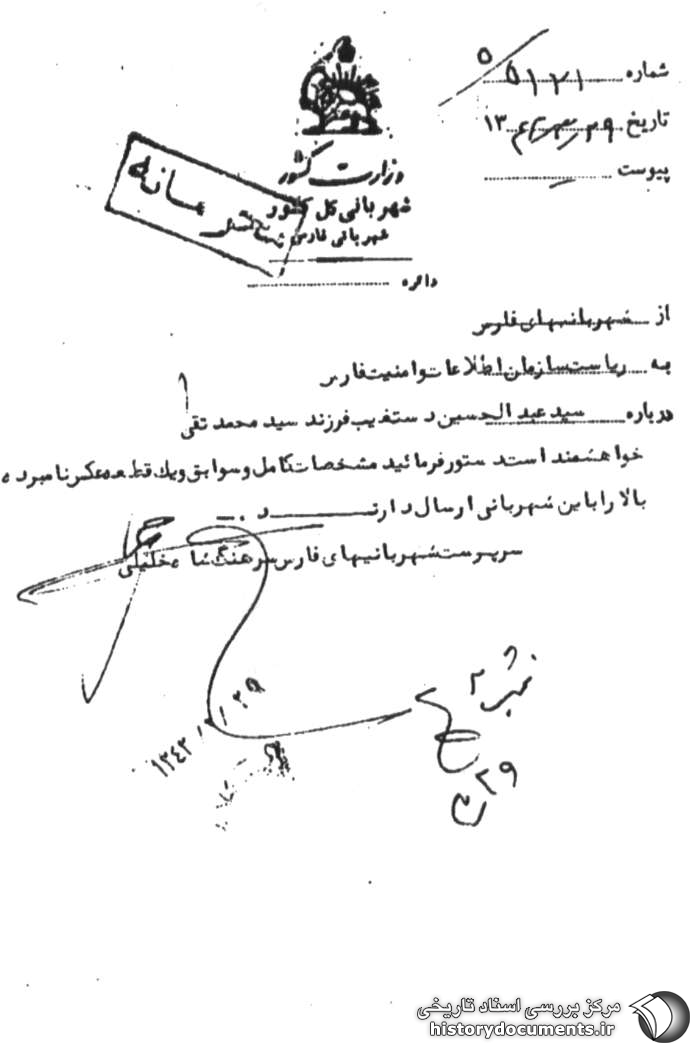 شماره ۵/۵۱۲۱
تاریخ ۲۹ر ۱۳
پیوست
وزارت کشور
شهربانی کل کشور
شهربانی فارس
محرمانه
دائره
از شهربانیهای فارس
به ریاست سازمان اطلاعات و امنیت فارس
درباره سید عبدالحسین دستغیب فرزند سید محمد تقی
خواهشمند است دستور فرمائید مشخصات کامل و سوابق و یک قطعه عکس نامبرده
بالا را باین شهربانی ارسال دارند .
سرپرست شهربانیهای فارس سرهنگ شاه خلیلی
۱۳۴۳/ /۲۹
۲۹
مرکز بررسی اسناد تاریخی
historydocuments.ir